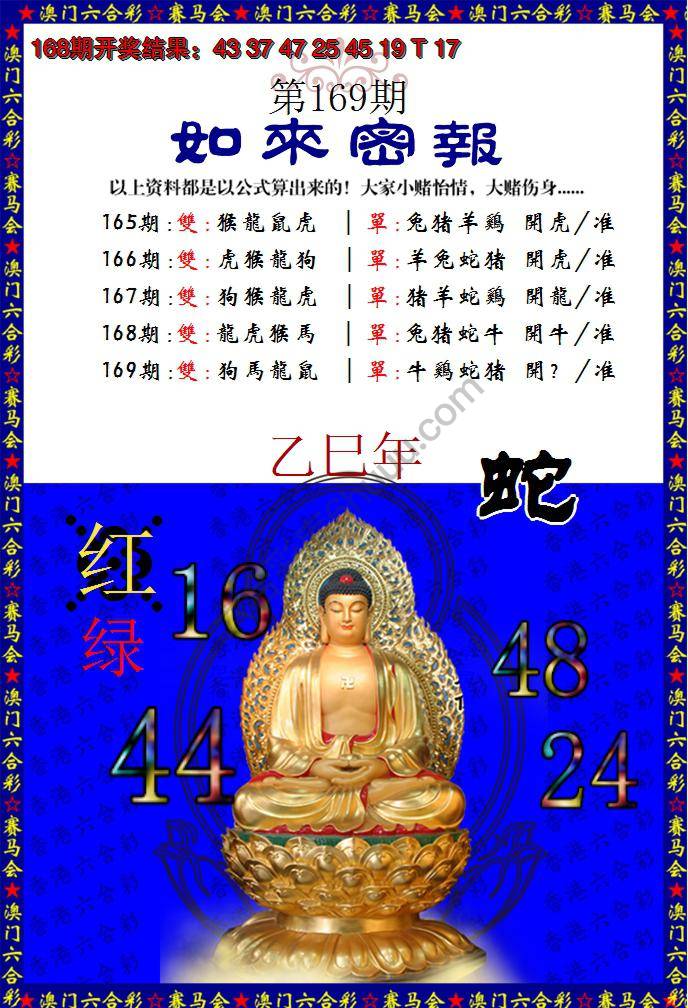 ★澳门六合彩☆赛马会★澳门六合彩☆赛马会★澳门六合彩☆赛马会★澳门六合彩☆赛马会
168期开奖结果：43 37 47 25 45 19 T 17
第169期
如來密報
以上资料都是以公式算出来的！大家小赌怡情，大赌伤身......
165期：雙：猴龍鼠虎 | 單：兔猪羊鷄 開虎/准
166期：雙：虎猴龍狗 | 單：羊兔蛇猪 開虎/准
167期：雙：狗猴龍虎 | 單：猪羊蛇鷄 開龍/准
168期：雙：龍虎猴馬 | 單：兔猪蛇牛 開牛/准
169期：雙：狗馬龍鼠 | 單：牛鷄蛇猪 開？/准
乙巳年
蛇
红
绿
16
48
44
24
香港六合彩